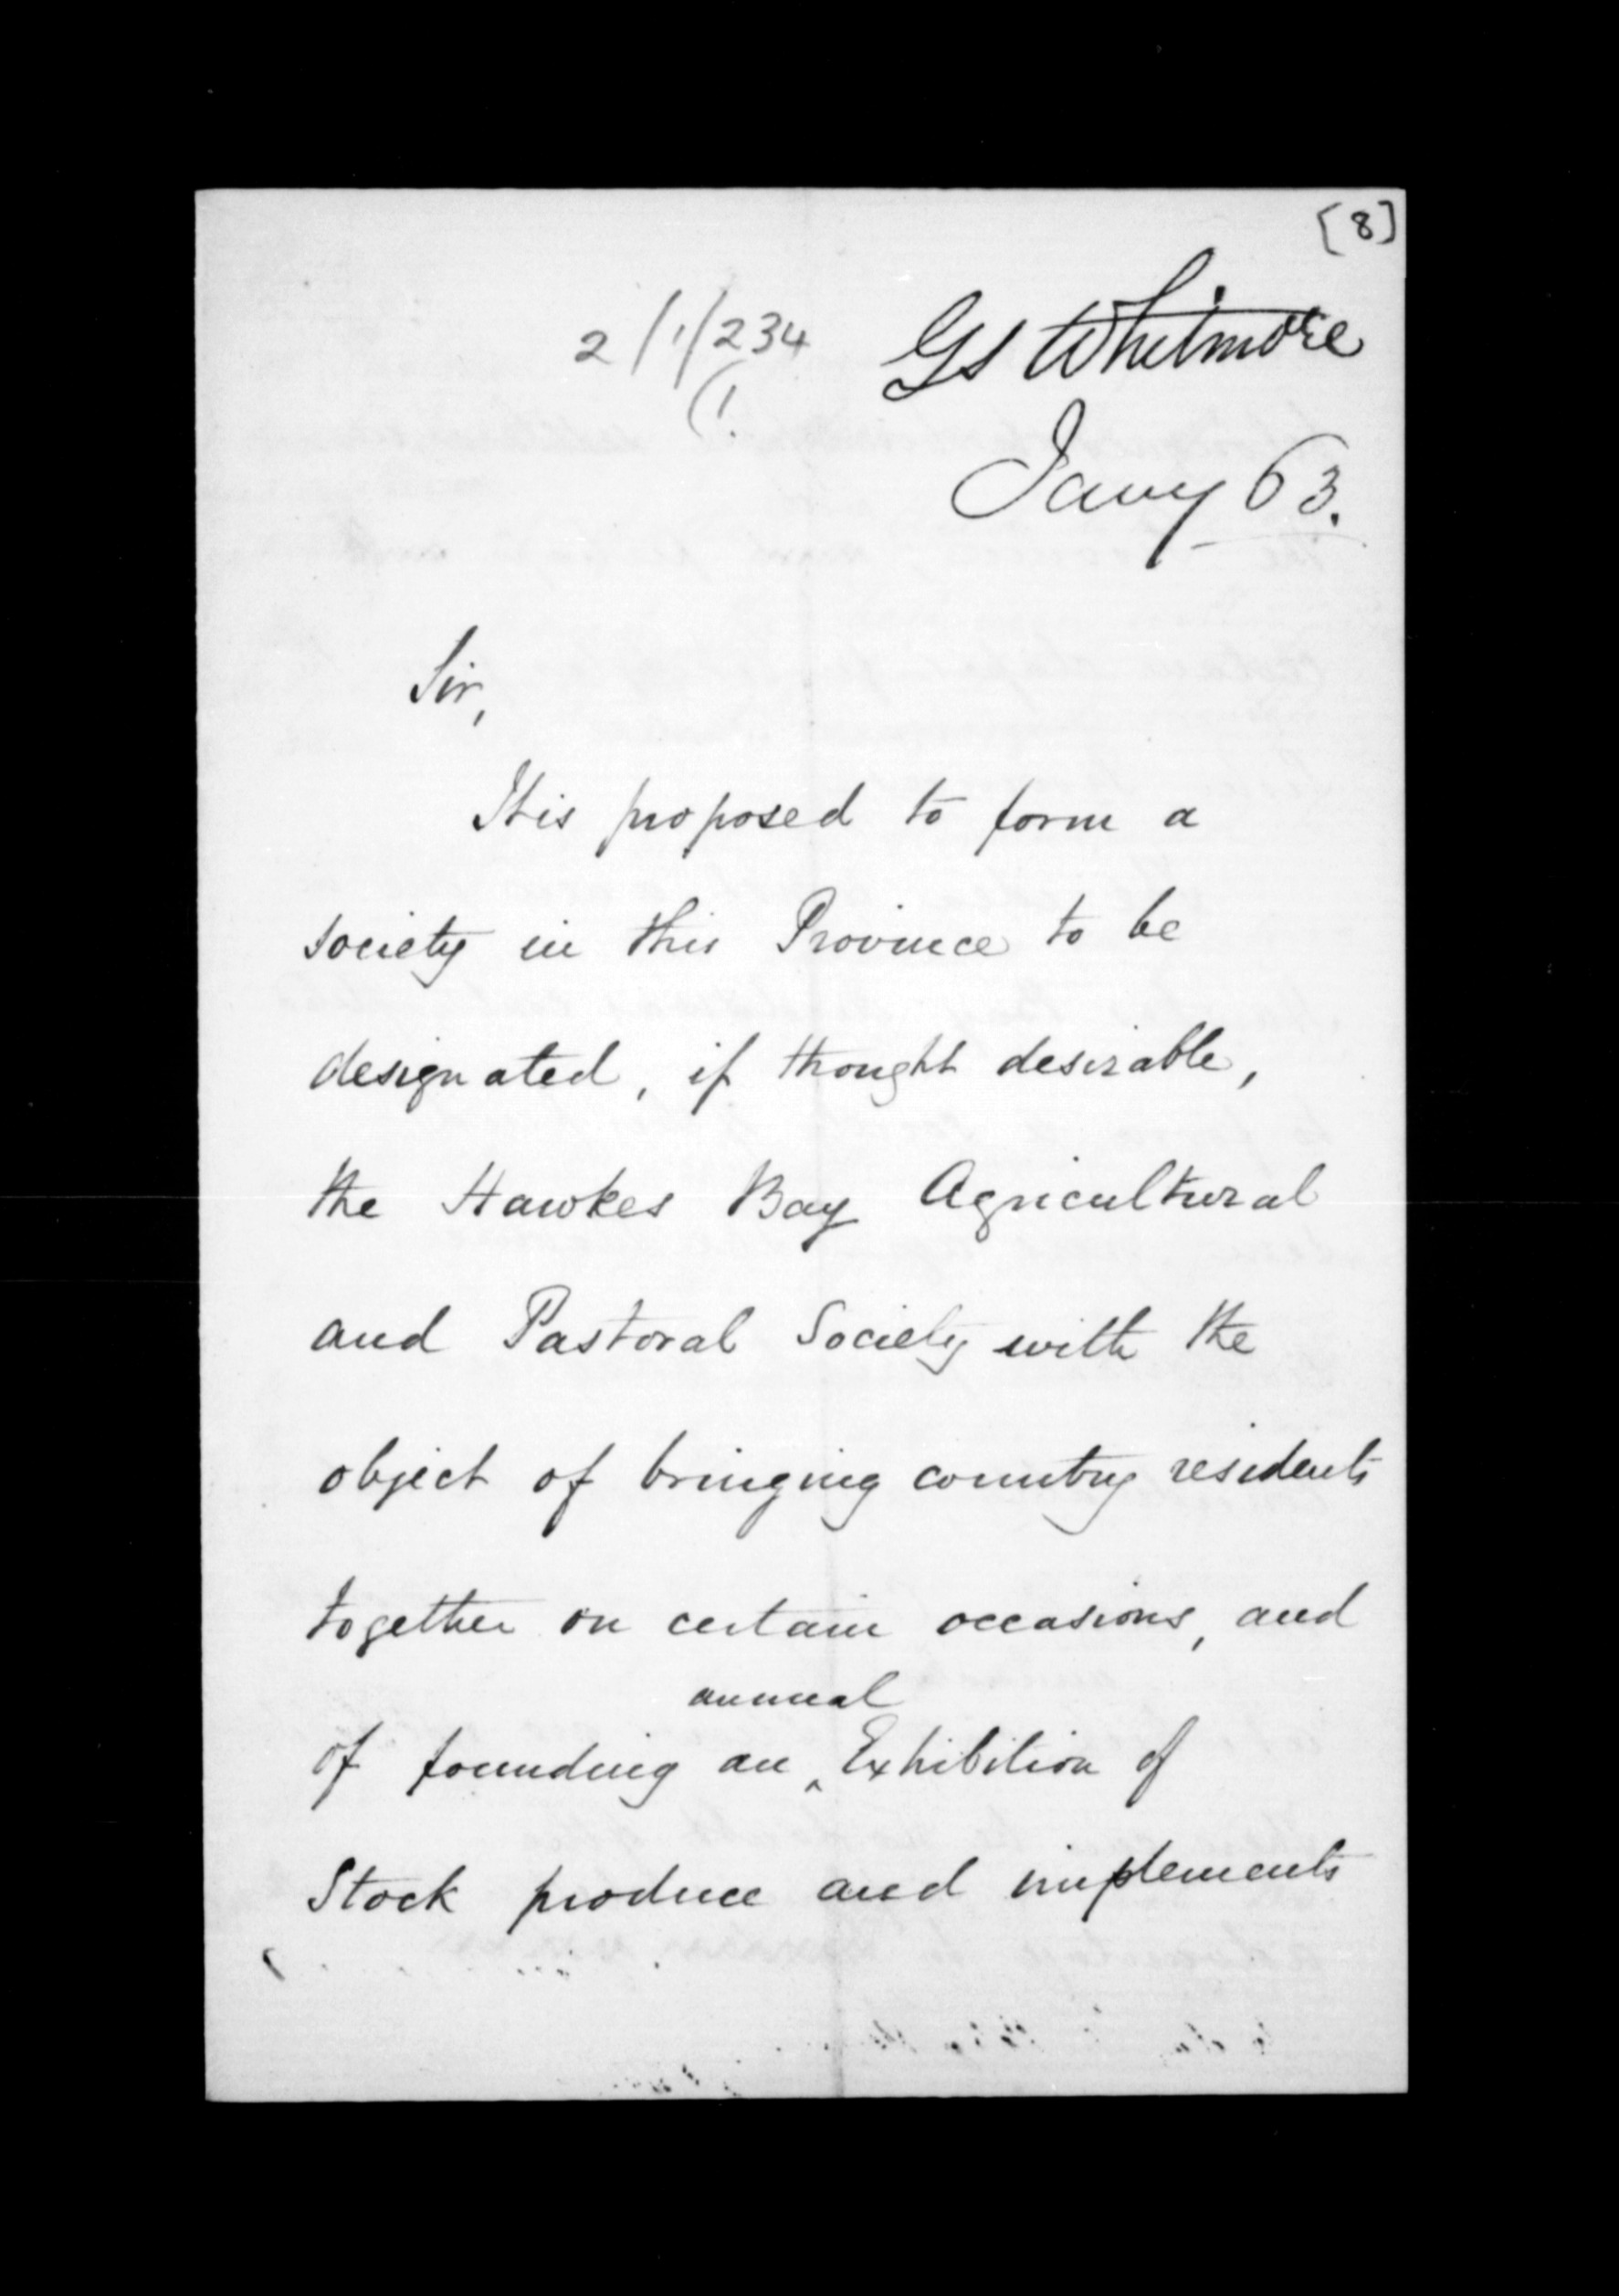 [8]
2/1/234 GS Whitmore
(1.
Jany 63.
Sir,
It is proposed to form a
society in this Province to be
designated, if thought desirable,
the Hawkes Bay Agricultural
and Pastoral Society with the
object of bringing country residents
together on certain occasions, and
annual
of founding an ‸ Exhibition of
Stock produce and implements